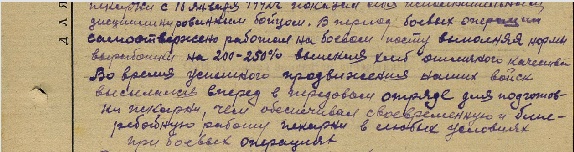 пекарни с 18 января 1942 показал себя исполнительным,
дисциплинированным бойцом. В период боевых операции
самоотвержено работал на боевом посту выполняя нормы
выработки на 200-250% выпекая хлеб отличного качества
Во время успешного продвижения наших войск
высылался вперед в передовом отряде для подготов-
ки пекарни, чем обеспечивал своевременную и беспе-
ребойную работу пекарни в любых условиях
при боевых операциях
ДЛЯ